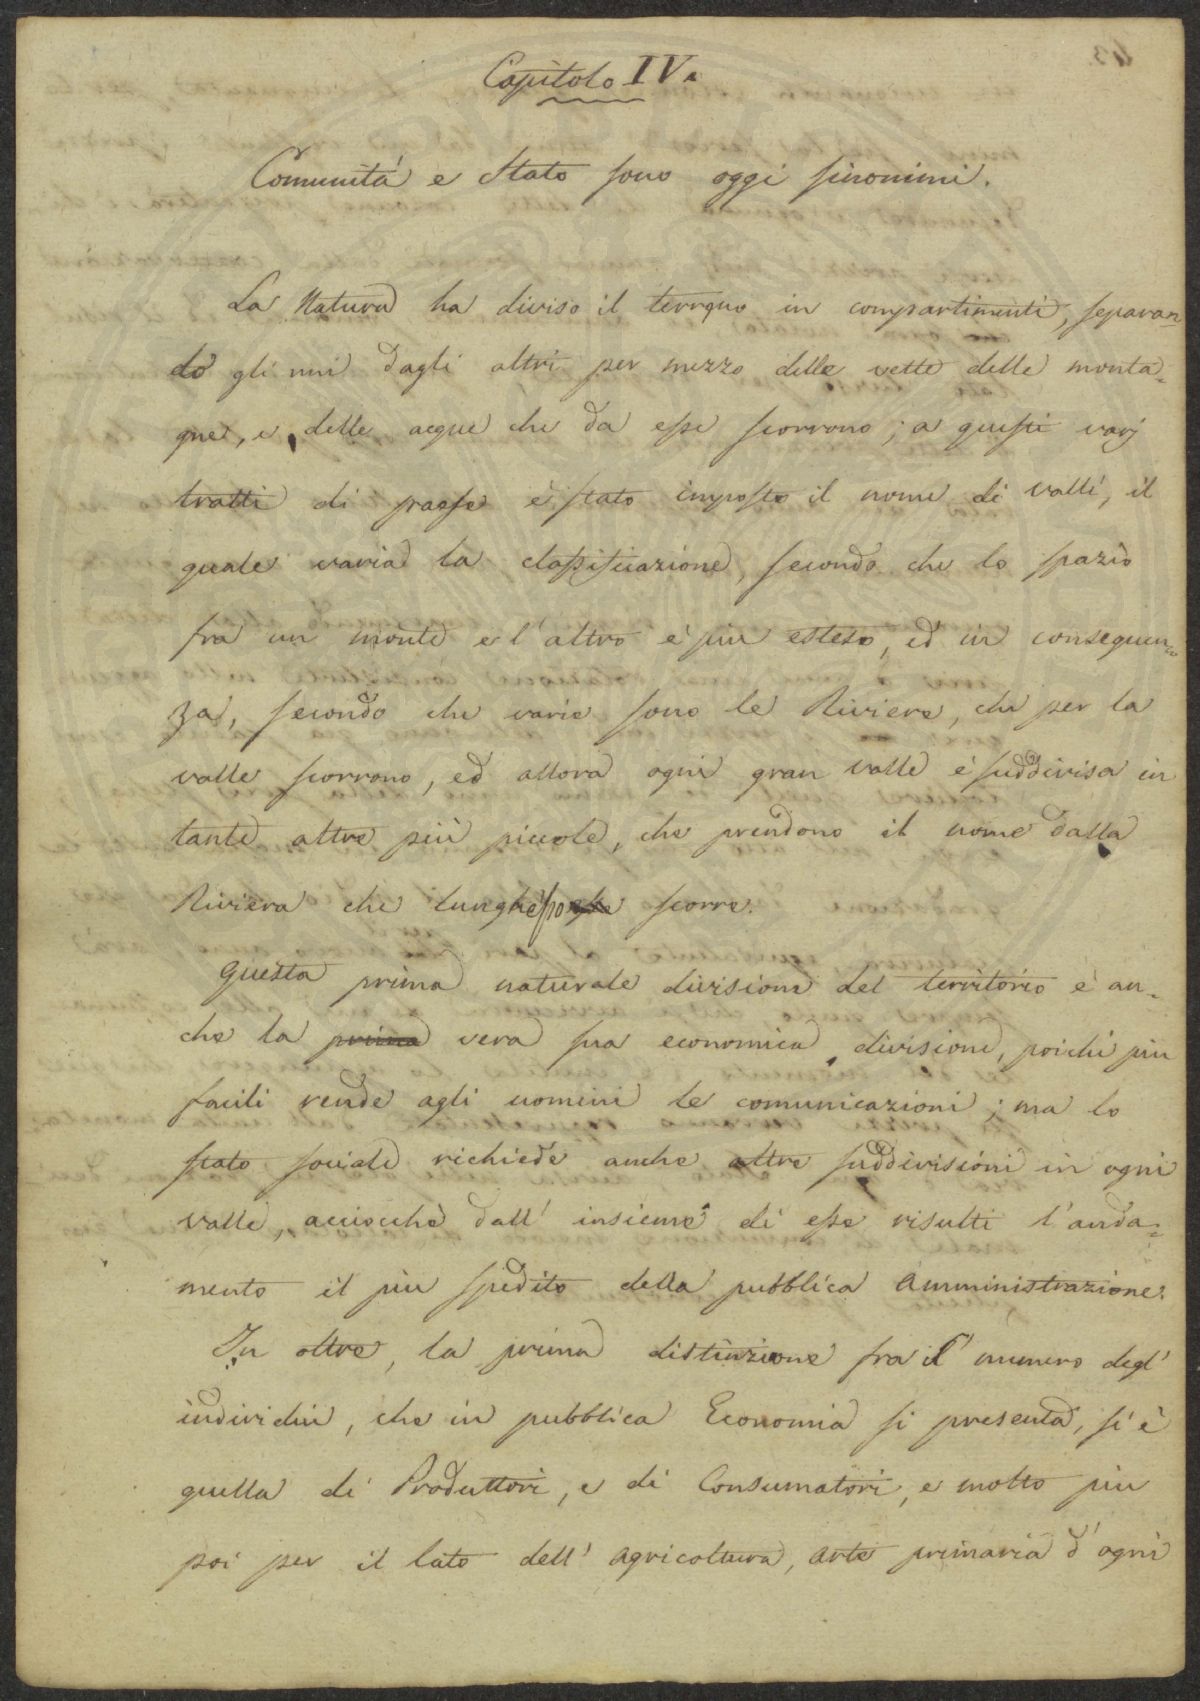 Capitolo IV.
Comunitá e Stato sono oggi sinonimi.
La Natura ha diviso il terrqueo in compartimenti, separan-
do gli uni dagli altri per mezzo delle vette delle monta-
gne, e delle acque che da esse scorrono; a questi varj
tratti di paese è stato imposto il nome di valli, il
quale varia la classificazione, secondo che lo spazio
fra un monte e l'altro è piu esteso, ed in conseguen-
za, secondo che varie sono le Riviere, che per la
valle scorrono, ed allora ogni gran valle è suddivisa in
tante altre più piccole, che prendono il nome dalla
Riviera che lunghesso scorre.
Questa prima naturale divisione del territorio è an-
che la prima vera sua economica divisione, poichè piu
facili rende agli uomini le comunicazioni; ma lo
stato sociale richiede anche altre suddivisioni in ogni
valle, acciocchè dall' insieme di esse risulti l'anda-
mento il piu spedito della pubblica Amministrazione.
In oltre, la prima distinzione fra il numero degl'
individui, che in pubblica Economia si presenta, si è
quella di Produttori, e di Consumatori, e molto piu
poi per il lato dell' agricoltura, arte primaria d'ogni